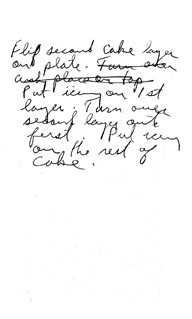 Flip second cake layer
on plate. Turn over
and place on top
Put icing on 1st
layer. Turn over
second layer onto
first. Put icing
on the rest of
cake.